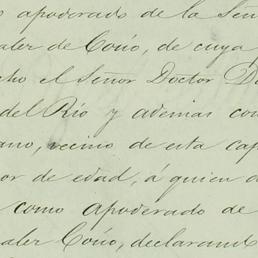 o apoderado de la Señ
aler de Coúo, de cuya
ho el Señor Doctor D
del Río y ademas con
ano, vecino de esta cap
or de edad, á quien d
como apoderado de
aler Coúo, declarand